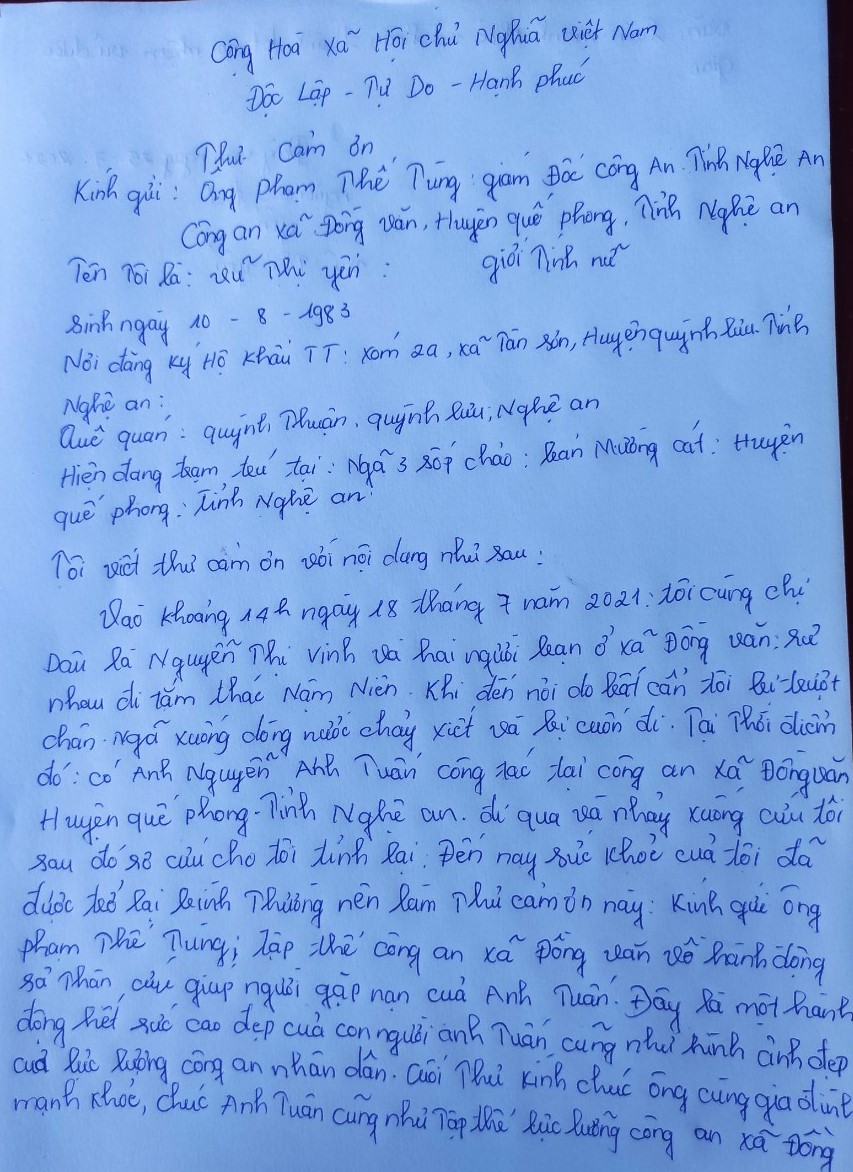 Cộng Hoà Xã Hội chủ Nghĩa việt Nam
Độc Lập - Tự Do - Hạnh phúc
Thư Cảm ơn
Kính gửi: Ông Phạm Thế Tùng: giám Đốc Công An Tỉnh Nghệ An
Công an xã Đồng văn, Huyện quế phong, Tỉnh Nghệ an
Tên Tôi là: vũ Thị yến: giới Tính nữ
Sinh ngày 10 - 8 - 1983
Nơi đăng ký Hộ khẩu TT: xóm 2a, xã Tân sơn, Huyện quỳnh lưu Tỉnh
Nghệ an:
Quê quán: quỳnh Thuận, quỳnh lưu, Nghệ an
Hiện đang tạm trú tại: Ngã 3 sốp chảo: bản Mường cát: Huyện
quế phong: Tỉnh Nghệ an:
Tôi viết thư cảm ơn với nội dung như sau:
Vào khoảng 14h ngày 18 tháng 7 năm 2021: tôi cùng chị
Dâu là Nguyễn Thị Vinh và hai người bạn ở xã Đồng văn: rủ
nhau đi tắm thác Nậm Niên. Khi đến nơi do bất cẩn tôi bị trượt
chân. ngã xuống dòng nước chảy xiết và bị cuốn đi. Tại Thời điểm
đó: có Anh Nguyễn Anh Tuấn công tác tại công an xã Đồng văn
Huyện quế phong - Tỉnh Nghệ an. đi qua và nhảy xuống cứu tôi
sau đó sơ cứu cho tôi tỉnh lại. Đến nay sức khoẻ của tôi đã
được trở lại bình Thường nên làm Thư cảm ơn này: Kính gửi ông
phạm Thế Tùng; tập thể công an xã Đồng văn về hành động
sả Thân, cứu giúp người gặp nạn của Anh Tuấn. Đây là một hành
động hết sức cao đẹp của con người anh Tuấn cũng như hình ảnh đẹp
của lực lượng công an nhân dân. Cuối Thư kính chúc ông cùng gia đình
mạnh khoẻ, chúc Anh Tuấn cũng như Tập thể lực lưỡng công an xã Đồng